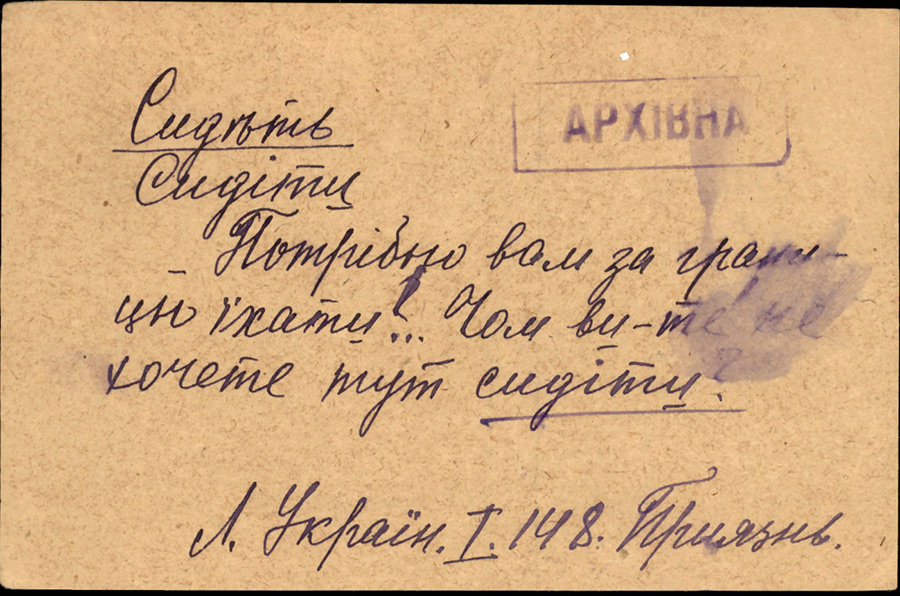 Сидѣть
АРХІВНА
Сидіти
Потрібно вам за грани-
цю їхати!... Чом ви-те не
хочете тут сидіти?
Л. Україн. I. 148. Приязнь.